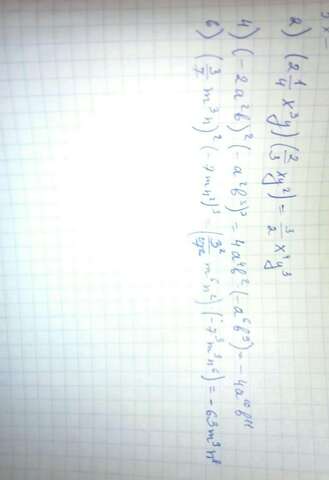 2) (2 1/4 x³y)(2/3 xy²) = 3/2 x⁴y³
4) (-2a²b)²(-a²b³)³ = 4a⁴b²(-a⁶b⁹) = -4a¹⁰b¹¹
6) (3/7 m³n)²(-7mn²)³ = (3²/7² m⁶n²)(-7³m³n⁶) = -63m⁹n⁸